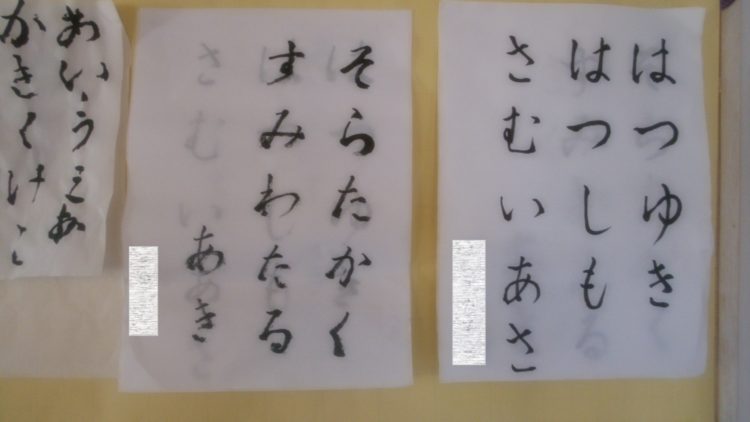 はつゆき
はつしも
さむいあさ
そらたかく
すみわたる
あき
あいうえお
かきくけこ